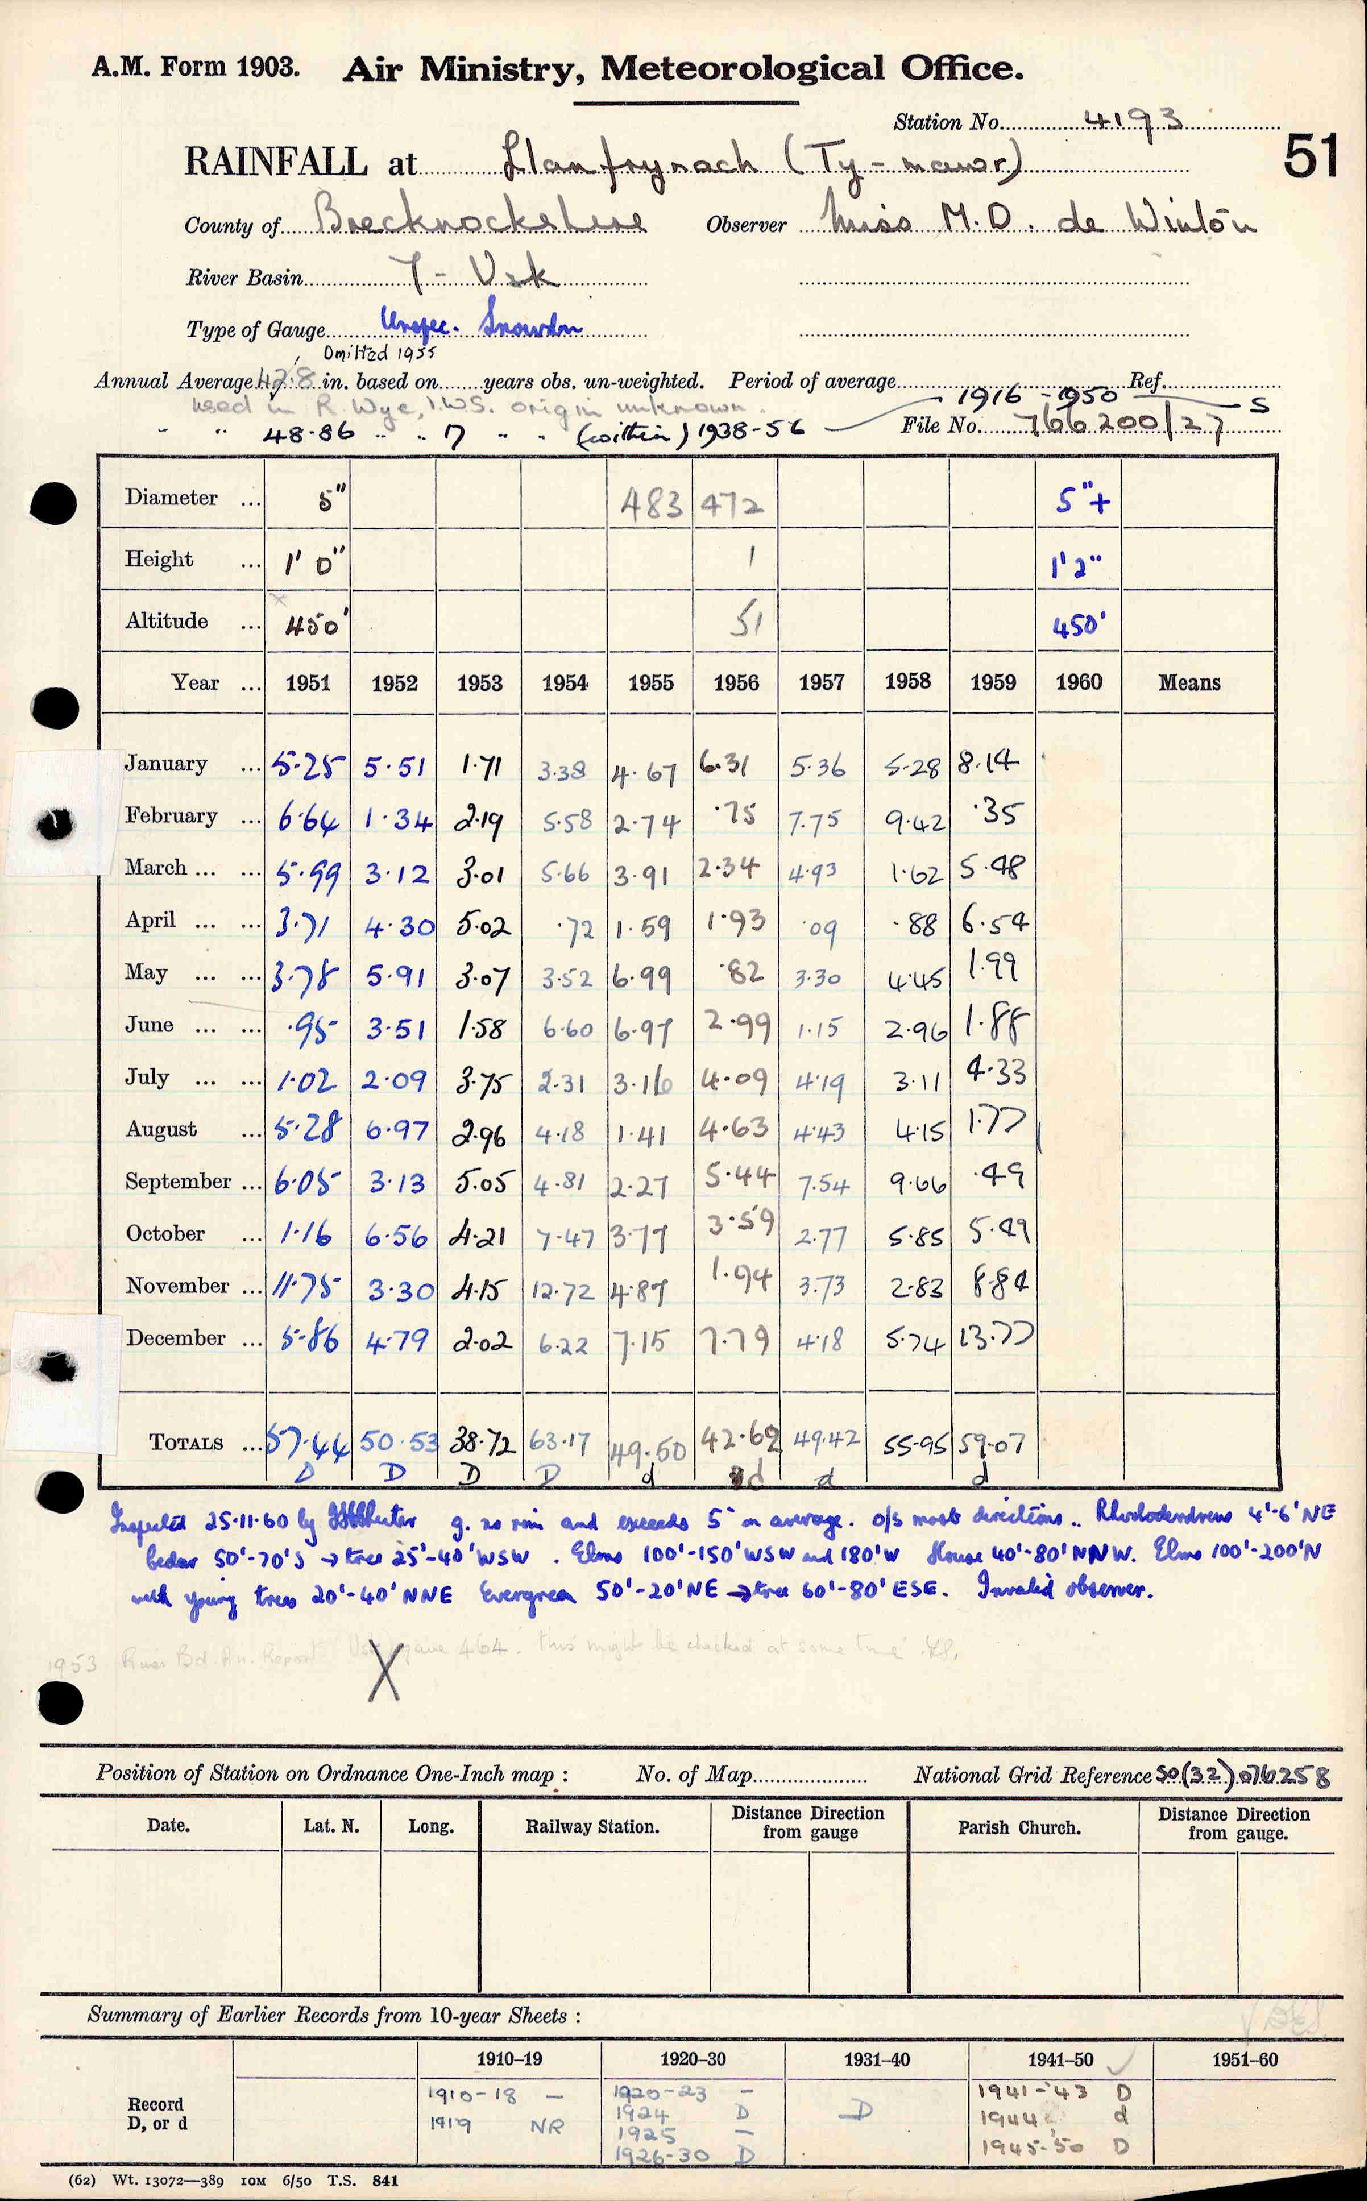 A.M. Form 1903. Air Ministry, Meteorological Office.
Station No. 4193
51
RAINFALL at Llanfrynach (Ty-mawr)
County of Brecknockshire Observer Miss M.D. de Winton
River Basin 7 - Usk
Type of Gauge Unspec. Snowdon
Omitted 1955
Annual Average 42.8 in. based on years obs. un-weighted. Period of average 1916 - 1950 Ref.
used in R. Wye, I.W.S. origin unknown. S
" " 48.86 " " 7 " " (within) 1938-56 File No. 766200/27
Diameter ... 5" 483 472 5"+
Height ... 1' 0" 1 1'2"
Altitude ... 450' 51 450'
Year ... 1951 1952 1953 1954 1955 1956 1957 1958 1959 1960 Means
January ... 5.25 5.51 1.71 3.38 4.67 6.31 5.36 5.28 8.14
February ... 6.64 1.34 2.19 5.58 2.74 .75 7.75 9.42 .35
March ... ... 5.99 3.12 3.01 5.66 3.91 2.34 4.93 1.62 5.48
April ... ... 3.71 4.30 5.02 .72 1.59 1.93 .09 .88 6.54
May ... ... 3.78 5.91 3.07 3.52 6.99 .82 3.30 4.45 1.99
June ... ... .95 3.51 1.58 6.60 6.97 2.99 1.15 2.96 1.88
July ... ... 1.02 2.09 3.75 2.31 3.16 4.09 4.19 3.11 4.33
August ... 5.28 6.97 2.96 4.18 1.41 4.63 4.43 4.15 1.77
September ... 6.05 3.13 5.05 4.81 2.27 5.44 7.54 9.66 .49
October ... 1.16 6.56 4.21 7.47 3.77 3.59 2.77 5.85 5.49
November ... 11.75 3.30 4.15 12.72 4.87 1.94 3.73 2.83 8.84
December ... 5.86 4.79 2.02 6.22 7.15 7.79 4.18 5.74 13.77
TOTALS ... 57.44 50.53 38.72 63.17 49.50 42.62 49.42 55.95 59.07
D D D D d d d d
Inspected 25.11.60 by g. no rim and exceeds 5" on average. o/s most directions.. Rhododendrons 4'-6' NE
bedar 50'-70' S → tree 25'-40' WSW. Elms 100'-150' WSW and 180' W House 40'-80' NNW. Elms 100'-200' N
with young trees 20'-40' NNE Evergreen 50'-20' NE → tree 60'-80' ESE. Invalid observer.
1953 River Bd. An. Report Usk gave 464. this might be checked at some time
X
Position of Station on Ordnance One-Inch map : No. of Map National Grid Reference SO(32)076258
Date. Lat. N. Long. Railway Station. Distance Direction from gauge Parish Church. Distance Direction from gauge.
Summary of Earlier Records from 10-year Sheets :
1910–19 1920–30 1931–40 1941–50 ✓ 1951–60
Record D, or d
1910-18 - 1920-23 - D 1941-'43 D
1919 NR 1924 D 1944 d
1925 - 1945-50 D
1926-30 D
(62) Wt. 13072—389 10M 6/50 T.S. 841